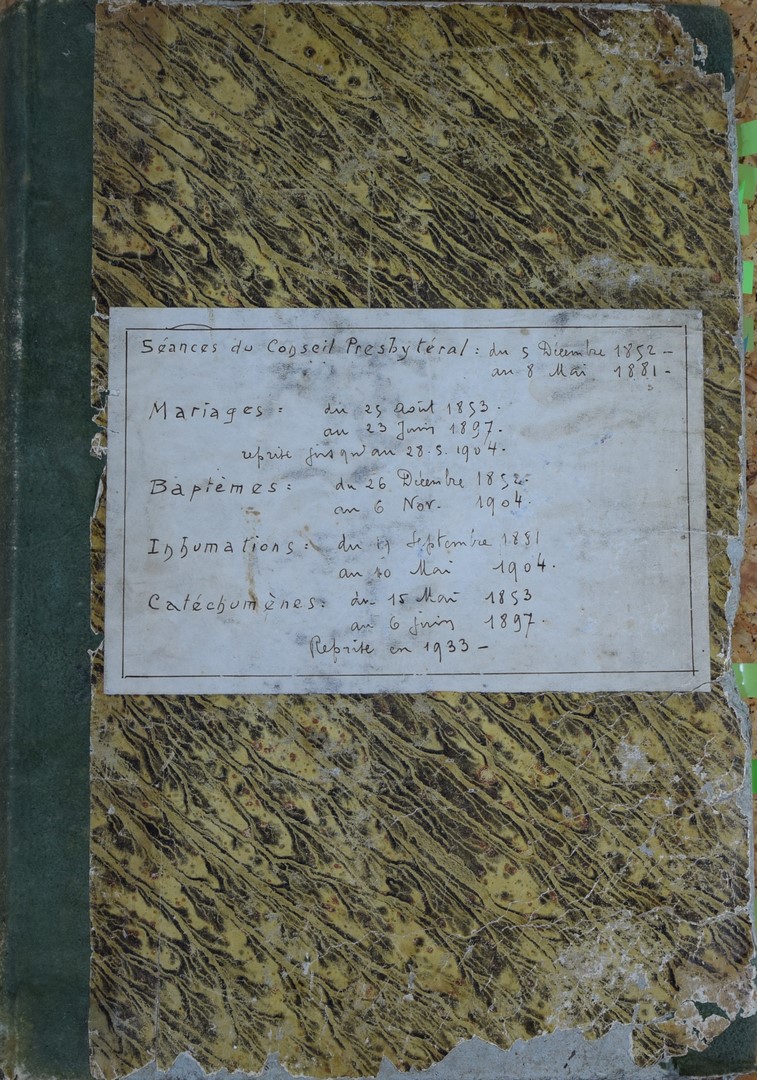 Séances du Conseil Presbytéral : du 5 Décembre 1852 -
au 8 Mai 1881 -
Mariages : du 25 Août 1853 -
au 23 Juin 1897 -
reprise jusqu'au 28.5.1904 -
Baptêmes : du 26 Décembre 1852 -
au 6 Nov. 1904.
Inhumations : du Septembre 1881
au 10 Mai 1904.
Catéchumènes : du 15 Mai 1853
au 6 Juin 1897.
Reprise en 1933 -